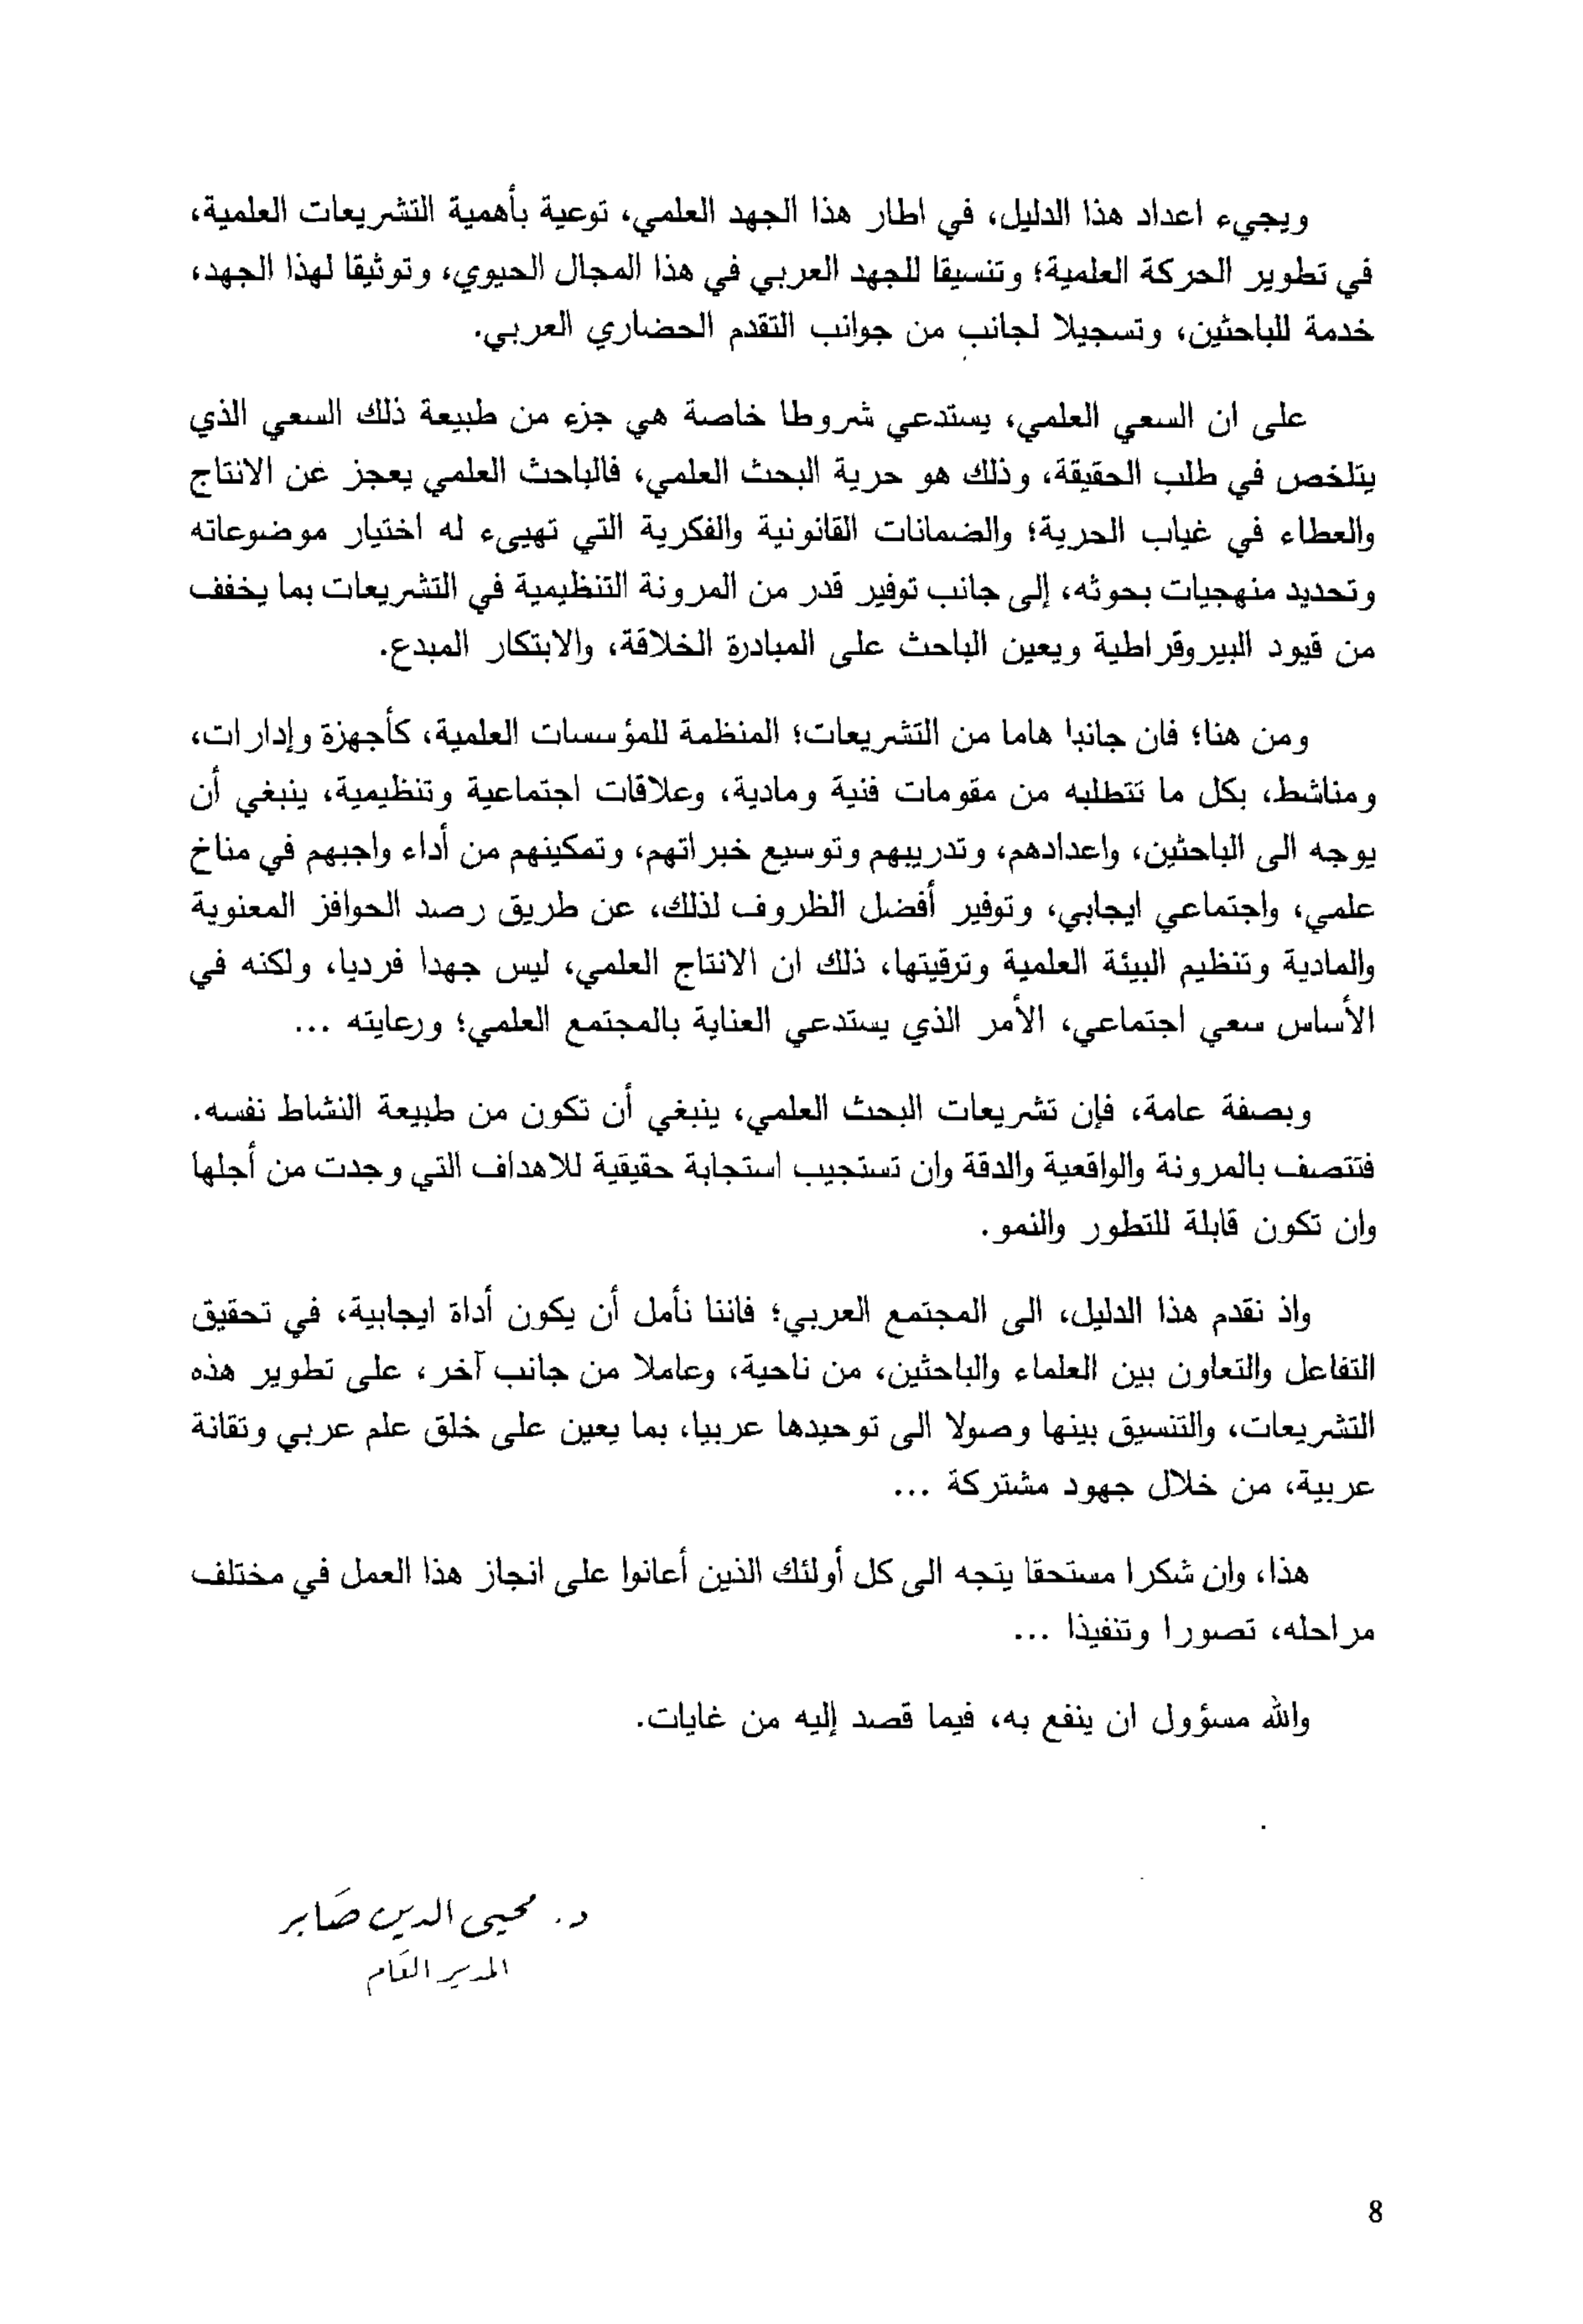 ويجيء اعداد هذا الدليل، في اطار هذا الجهد العلمي، توعية بأهمية التشريعات العلمية،
في تطوير الحركة العلمية؛ وتنسيقا للجهد العربي في هذا المجال الحيوي، وتوثيقا لهذا الجهد،
خدمة للباحثين، وتسجيلا لجانب من جوانب التقدم الحضاري العربي.
على ان السعي العلمي، يستدعي شروطا خاصة هي جزء من طبيعة ذلك السعي الذي
يتلخص في طلب الحقيقة، وذلك هو حرية البحث العلمي، فالباحث العلمي يعجز عن الانتاج
والعطاء في غياب الحرية؛ والضمانات القانونية والفكرية التي تهيىء له اختيار موضوعاته
وتحديد منهجيات بحوثه، إلى جانب توفير قدر من المرونة التنظيمية في التشريعات بما يخفف
من قيود البيروقراطية ويعين الباحث على المبادرة الخلاقة، والابتكار المبدع.
ومن هنا؛ فان جانبا هاما من التشريعات؛ المنظمة للمؤسسات العلمية، كأجهزة وإدارات،
ومناشط، بكل ما تتطلبه من مقومات فنية ومادية، وعلاقات اجتماعية وتنظيمية، ينبغي أن
يوجه الى الباحثين، واعدادهم، وتدريبهم وتوسيع خبراتهم، وتمكينهم من أداء واجبهم في مناخ
علمي، واجتماعي ايجابي، وتوفير أفضل الظروف لذلك، عن طريق رصد الحوافز المعنوية
والمادية وتنظيم البيئة العلمية وترقيتها، ذلك ان الانتاج العلمي، ليس جهدا فرديا، ولكنه في
الأساس سعي اجتماعي، الأمر الذي يستدعي العناية بالمجتمع العلمي؛ ورعايته ...
وبصفة عامة، فإن تشريعات البحث العلمي، ينبغي أن تكون من طبيعة النشاط نفسه.
فتتصف بالمرونة والواقعية والدقة وان تستجيب استجابة حقيقية للاهداف التي وجدت من أجلها
وان تكون قابلة للتطور والنمو.
واذ نقدم هذا الدليل، الى المجتمع العربي؛ فاننا نأمل أن يكون أداة ايجابية، في تحقيق
التفاعل والتعاون بين العلماء والباحثين، من ناحية، وعاملا من جانب آخر، على تطوير هذه
التشريعات، والتنسيق بينها وصولا الى توحيدها عربيا، بما يعين على خلق علم عربي وتقانة
عربية، من خلال جهود مشتركة ...
هذا، وان شكرا مستحقا يتجه الى كل أولئك الذين أعانوا على انجاز هذا العمل في مختلف
مراحله، تصورا وتنفيذا ...
والله مسؤول ان ينفع به، فيما قصد إليه من غايات.
د. محيى الدين صَابر
المدير العَام
8